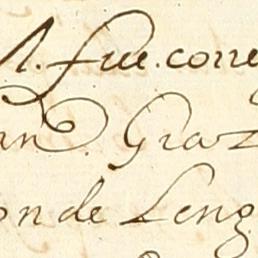 M. fue. corre
an. Graz
on de Leng